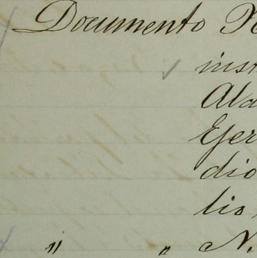 Documento N
inst
Ala
Ejer
dio
lio
" " N.